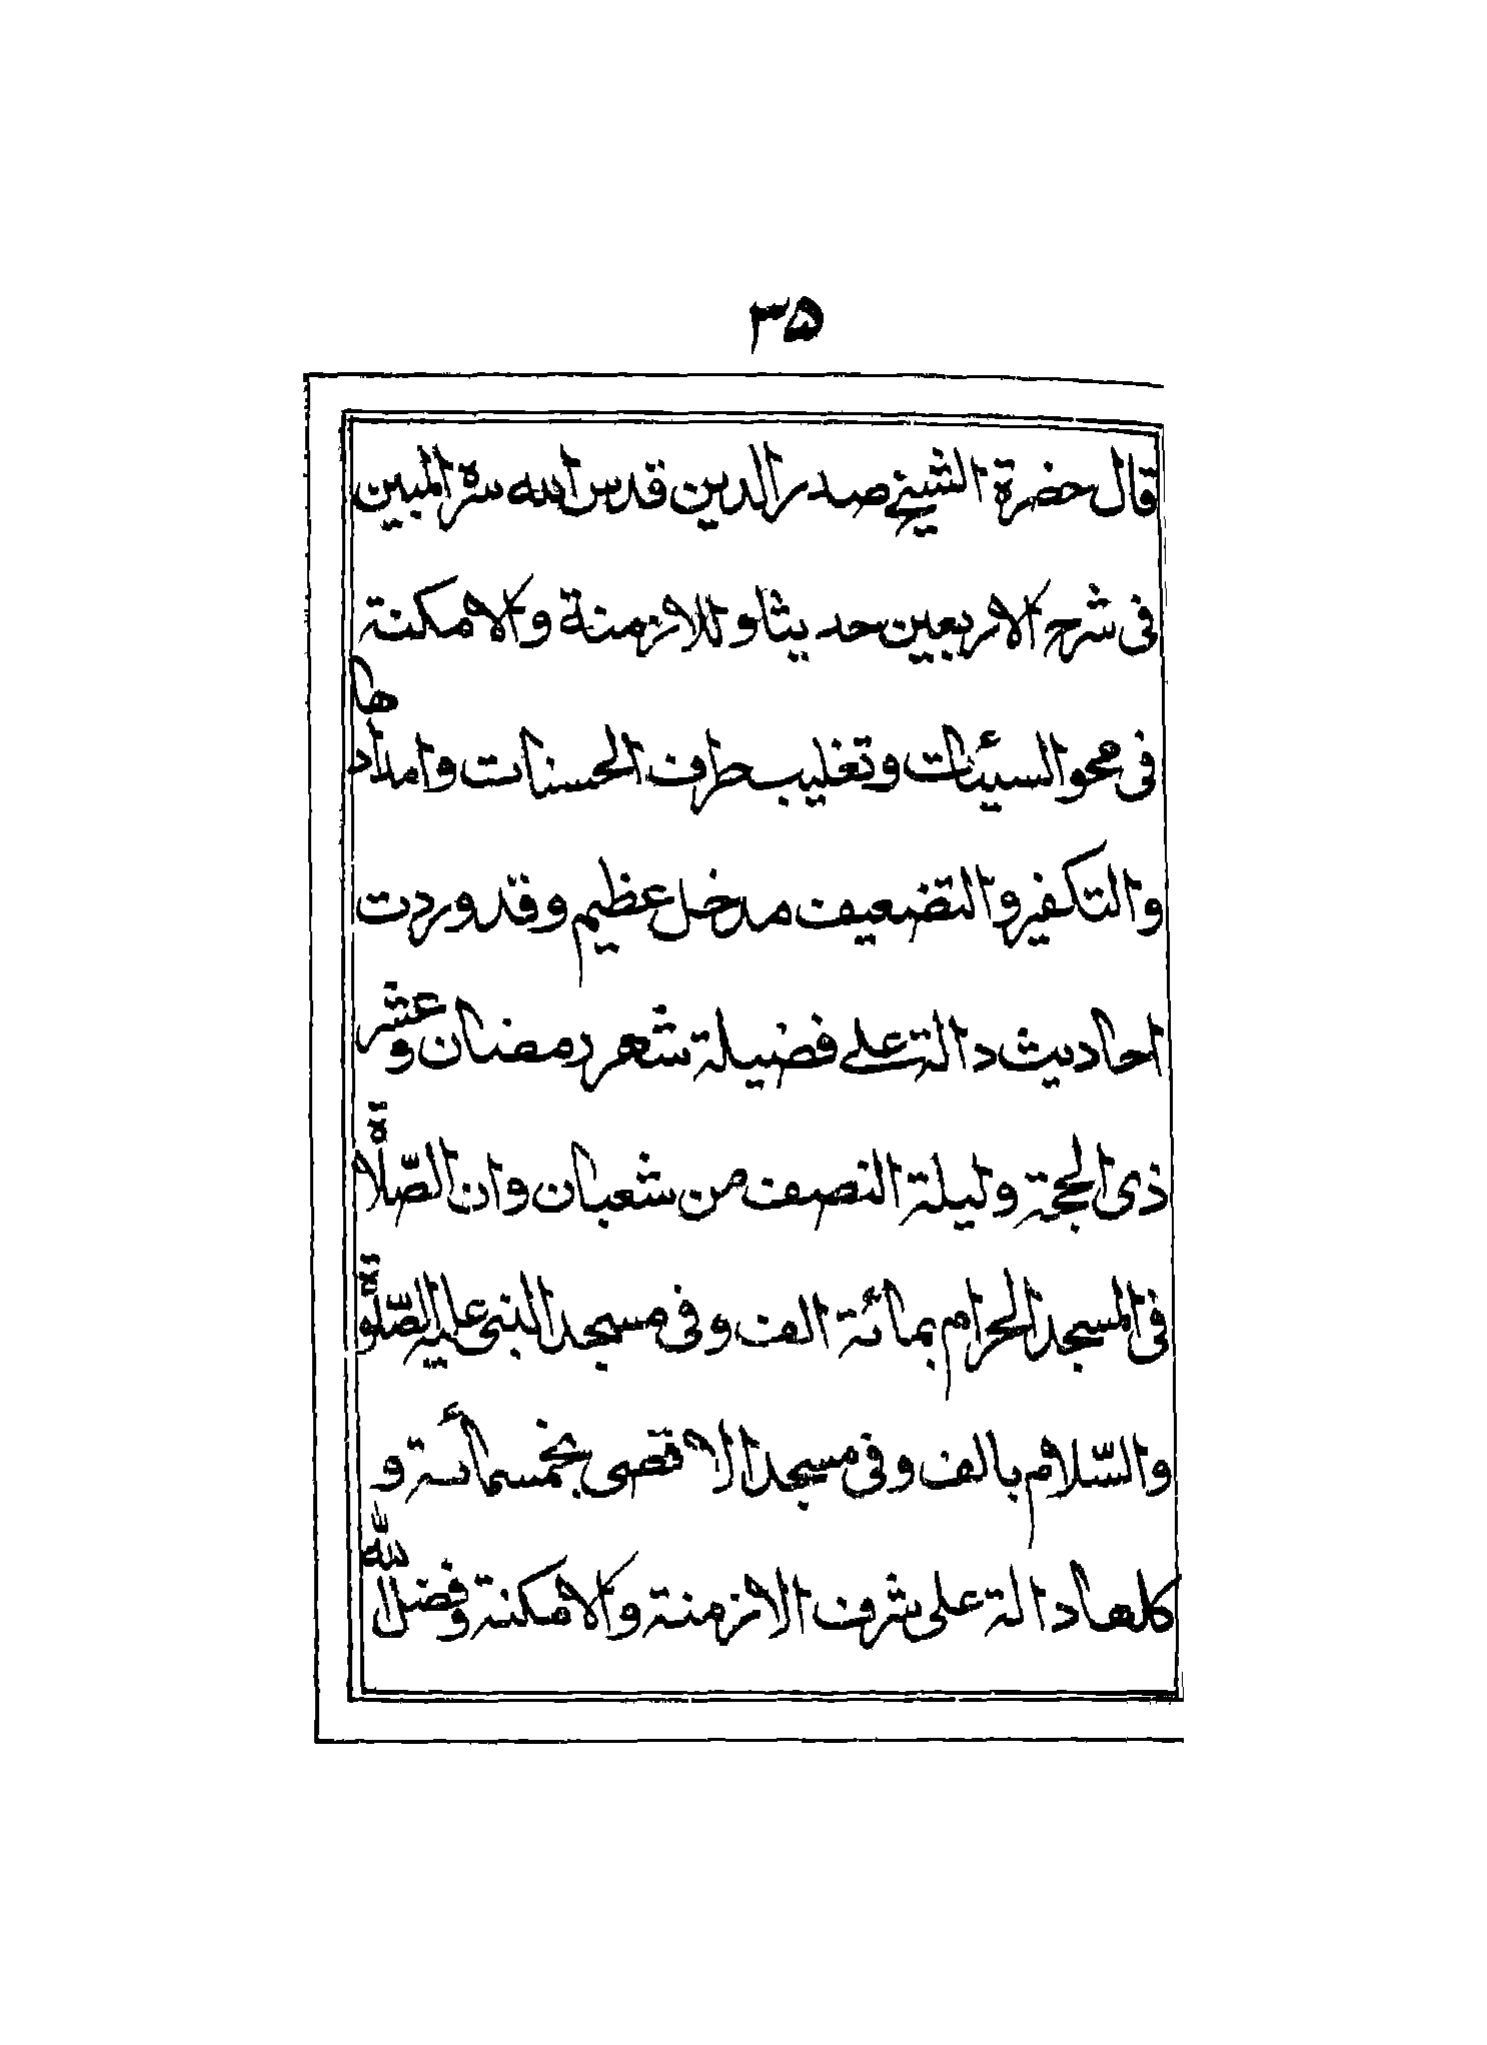 ٣۵
قال حضرة الشيخ صدر الدين قدس الله سره المبين
فى شرح الاربعين حديثا وللازمنة والامكنة
فى محو السيئات وتغليب طرف الحسنات وامدادها
والتكفير والتضعيف مدخل عظيم وقد وردت
احاديث دالة على فضيلة شهر رمضان وعشر
ذى الحجة وليلة النصف من شعبان وان الصّلاة
فى المسجد الحرام بمائة الف وفى مسجد النبى عليه الصّلوة
والسّلام بالف وفى مسجد الاقصى بخمسمائة و
كلها دالة على شرف الازمنة والامكنة وفضل الله